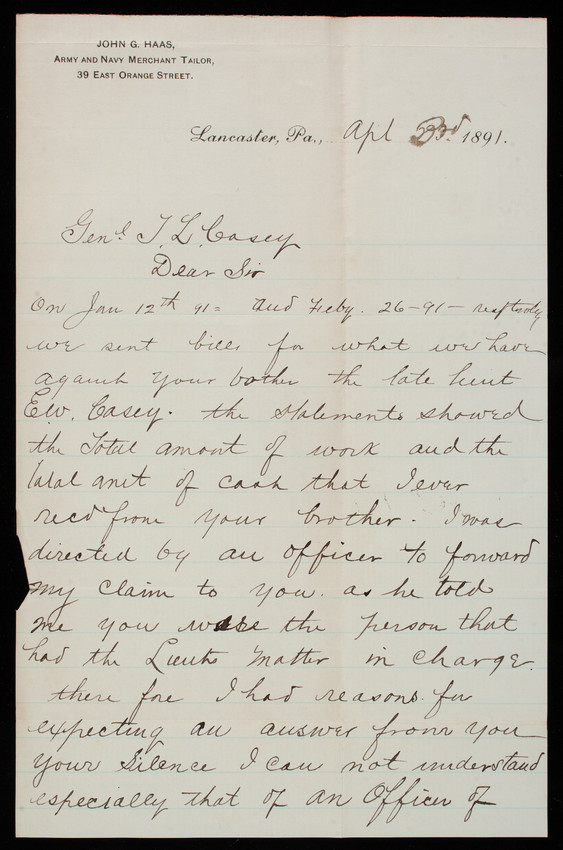 JOHN G. HAAS,
ARMY AND NAVY MERCHANT TAILOR,
39 EAST ORANGE STREET.
Lancaster, Pa., Apl 23rd 1891.
Genl T. L. Casey
Dear Sir
On Jan 12th 91 = and Feby. 26-91-
we sent bills for what we have
against your bother the late Lieut
E.W. Casey. the statements showed
the Total amount of work and the
total amt of cash that I ever
recd from your brother. I was
directed by an officer to forward
my claim to you. as he told
me you were the person that
had the Lieuts Matter in charge.
there fore I had reasons for
expecting an answer from you
your Silence I can not understand
especially that of an Officer of